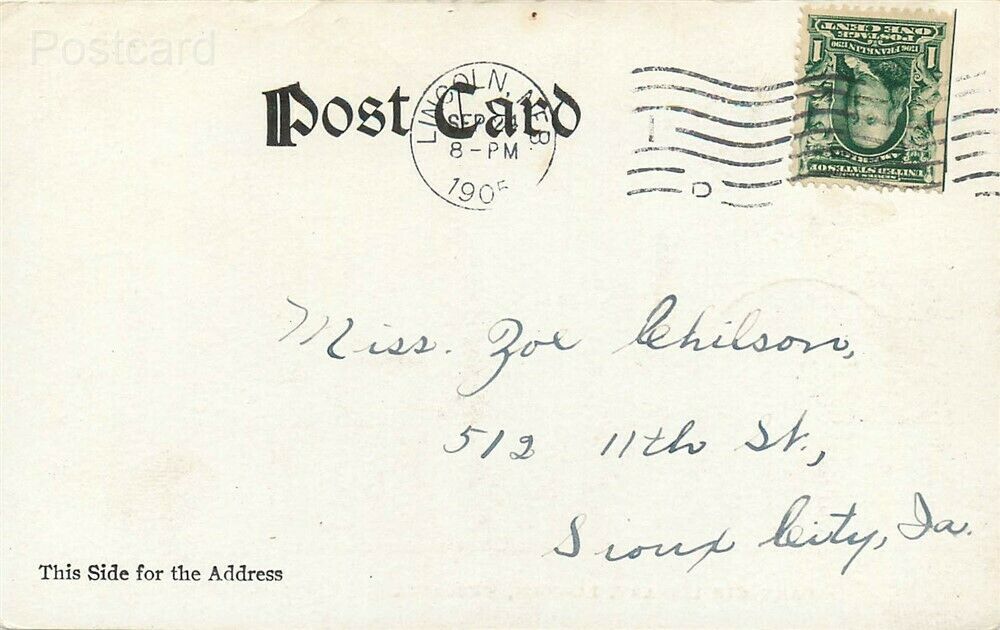 Postcard
Post Card
LINCOLN, NEB
SEP 24
8-PM
1905
POSTAGE
ONE CENT
1 1
1706 FRANKLIN 1790
UNITED STATES OF
AMERICA
D
Miss. Zoe Chilson,
512 11th St.,
Sioux City, Ia.
This Side for the Address